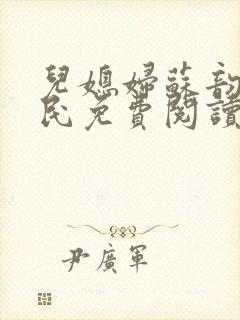 兒媳婦蘇韵
民免費閱讀
尹廣軍